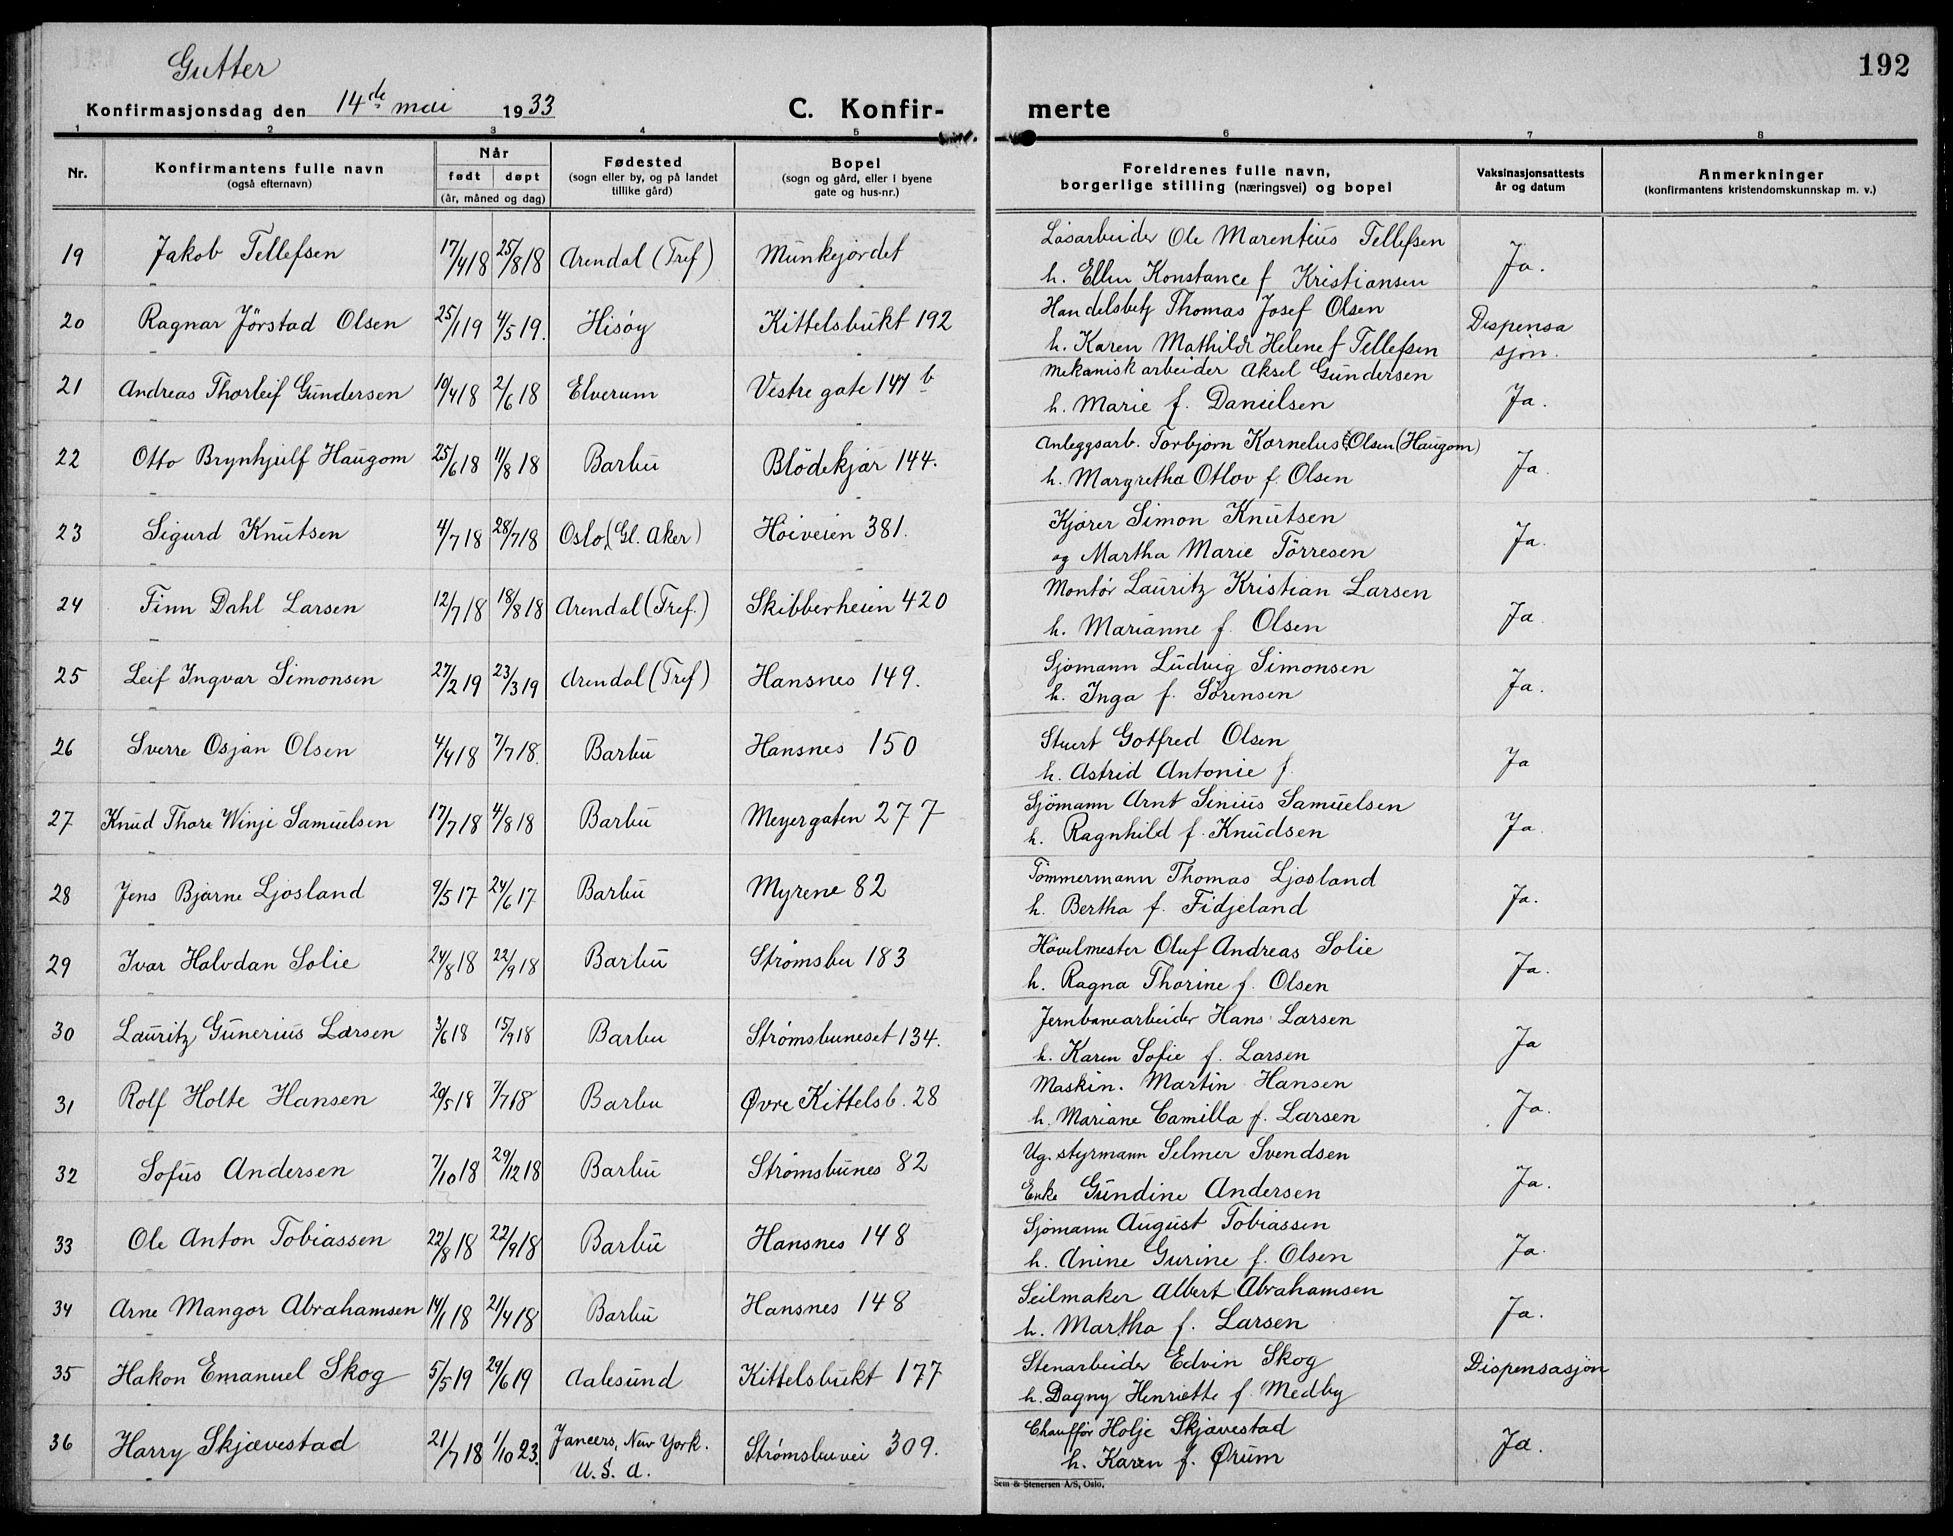 Gutter
192
Konfirmasjonsdag den 14de mai 1933
C. Konfir-
merte
1 2 3 4 5 6 7 8
Nr.
Konfirmantens fulle navn
(også efternavn)
Når
født døpt
(år, måned og dag)
Fødested
(sogn eller by, og på landet
tillike gård)
Bopel
(sogn og gård, eller i byene
gate og hus-nr.)
Foreldrenes fulle navn,
borgerlige stilling (næringsvei) og bopel
Vaksinasjonsattests
år og datum
Anmerkninger
(konfirmantens kristendomskunnskap m. v.)
19 Jakob Tellefsen 17/4 18 25/8 18 Arendal (Tref) Munkejordet Låsarbeider Ole Marentius Tellefsen Ja.
h. Ellen Konstance f Kristiansen
20 Ragnar Jörstad Olsen 25/1 19 4/5 19. Hisøy Kittelsbukt 192 Handelsbetj Thomas Josef Olsen Dispensa
h. Karen Mathilde Helene f Tellefsen sjon.
21 Andreas Thorleif Gundersen 19/4 18 2/6 18 Elverum Vestre gate 147 b Mekanisk arbeider Aksel Gundersen
h. Marie f. Danielsen Ja.
22 Otto Brynhjulf Haugom 25/6 18 11/8 18 Barbu Blödekjær 144. Anleggsarb. Torbjørn Kornelius Olsen (Haugom)
h. Margretha Otlov f. Olsen Ja.
23 Sigurd Knutsen 4/7 18 28/7 18 Oslo, (Gl. Aker) Höiveien 381. Kjører Simon Knutsen
og Martha Marie Törresen Ja.
24 Finn Dahl Larsen 12/7 18 18/8 18 Arendal (Tref.) Skibberheien 420 Montör Lauritz Kristian Larsen
h. Marianne f. Olsen Ja
25 Leif Ingvar Simonsen 27/2 19 23/3 19 Arendal (Tref) Hansnes 149. Sjömann Ludvig Simonsen
h. Inga f. Sörensen Ja.
26 Sverre Osjan Olsen 4/4 18 7/7 18. Barbu Hansnes 150 Stuert Gotfred Olsen
h. Astrid Antonie f. Ja
27 Knud Thore Winje Samuelsen 17/7 18 4/8 18 Barbu Meyergaten 277 Sjömann Arnt Sinius Samuelsen
h. Ragnhild f. Knudsen Ja.
28 Jens Bjarne Ljosland 9/5 17 24/6 17. Barbu Myrene 82 Tömmermann Thomas Ljosland
h. Bertha f. Fidjeland Ja.
29 Ivar Halvdan Solie 24/8 18 22/9 18 Barbu Strømsbu 183 Hövelmester Oluf Andreas Solie
h. Ragna Thorine f. Olsen Ja.
30 Lauritz Gunerius Larsen 3/6 18 15/9 18 Barbu Strømsbuneset 134. Jernbanearbeider Hans Larsen
h. Karen Sofie f. Larsen Ja
31 Rolf Holte Hansen 20/5 18 7/7 18 Barbu Øvre Kittelsb. 28 Maskin. Martin Hansen
h. Mariane Camilla f. Larsen Ja.
32 Sofus Andersen 7/10 18 29/12 18 Barbu Strømsbunes 82 Ug. styrmann Selmer Svendsen
Enke Gundine Andersen Ja.
33 Ole Anton Tobiassen 22/8 18 22/9 18 Barbu Hansnes 148 Sjömann August Tobiassen
h. Anine Gurine f. Olsen Ja.
34 Arne Mangor Abrahamsen 14/1 18 21/4 18 Barbu Hansnes 148 Seilmaker Albert Abrahamsen
h. Martha f. Larsen Ja.
35 Hakon Emanuel Skog 5/5 19 29/6 19 Aalesund Kittelsbukt 177 Stenarbeider Edvin Skog Dispensasjon
h. Dagny Henriette f. Medby
36 Harry Skjævestad 21/7 18 1/10 23. Jancers, New York. Strømsbuvei 309. Chauffør Holje Skjævestad Ja.
U. S. A. h. Karen f. Ørum
Sem & Stenersen A/S, Oslo.